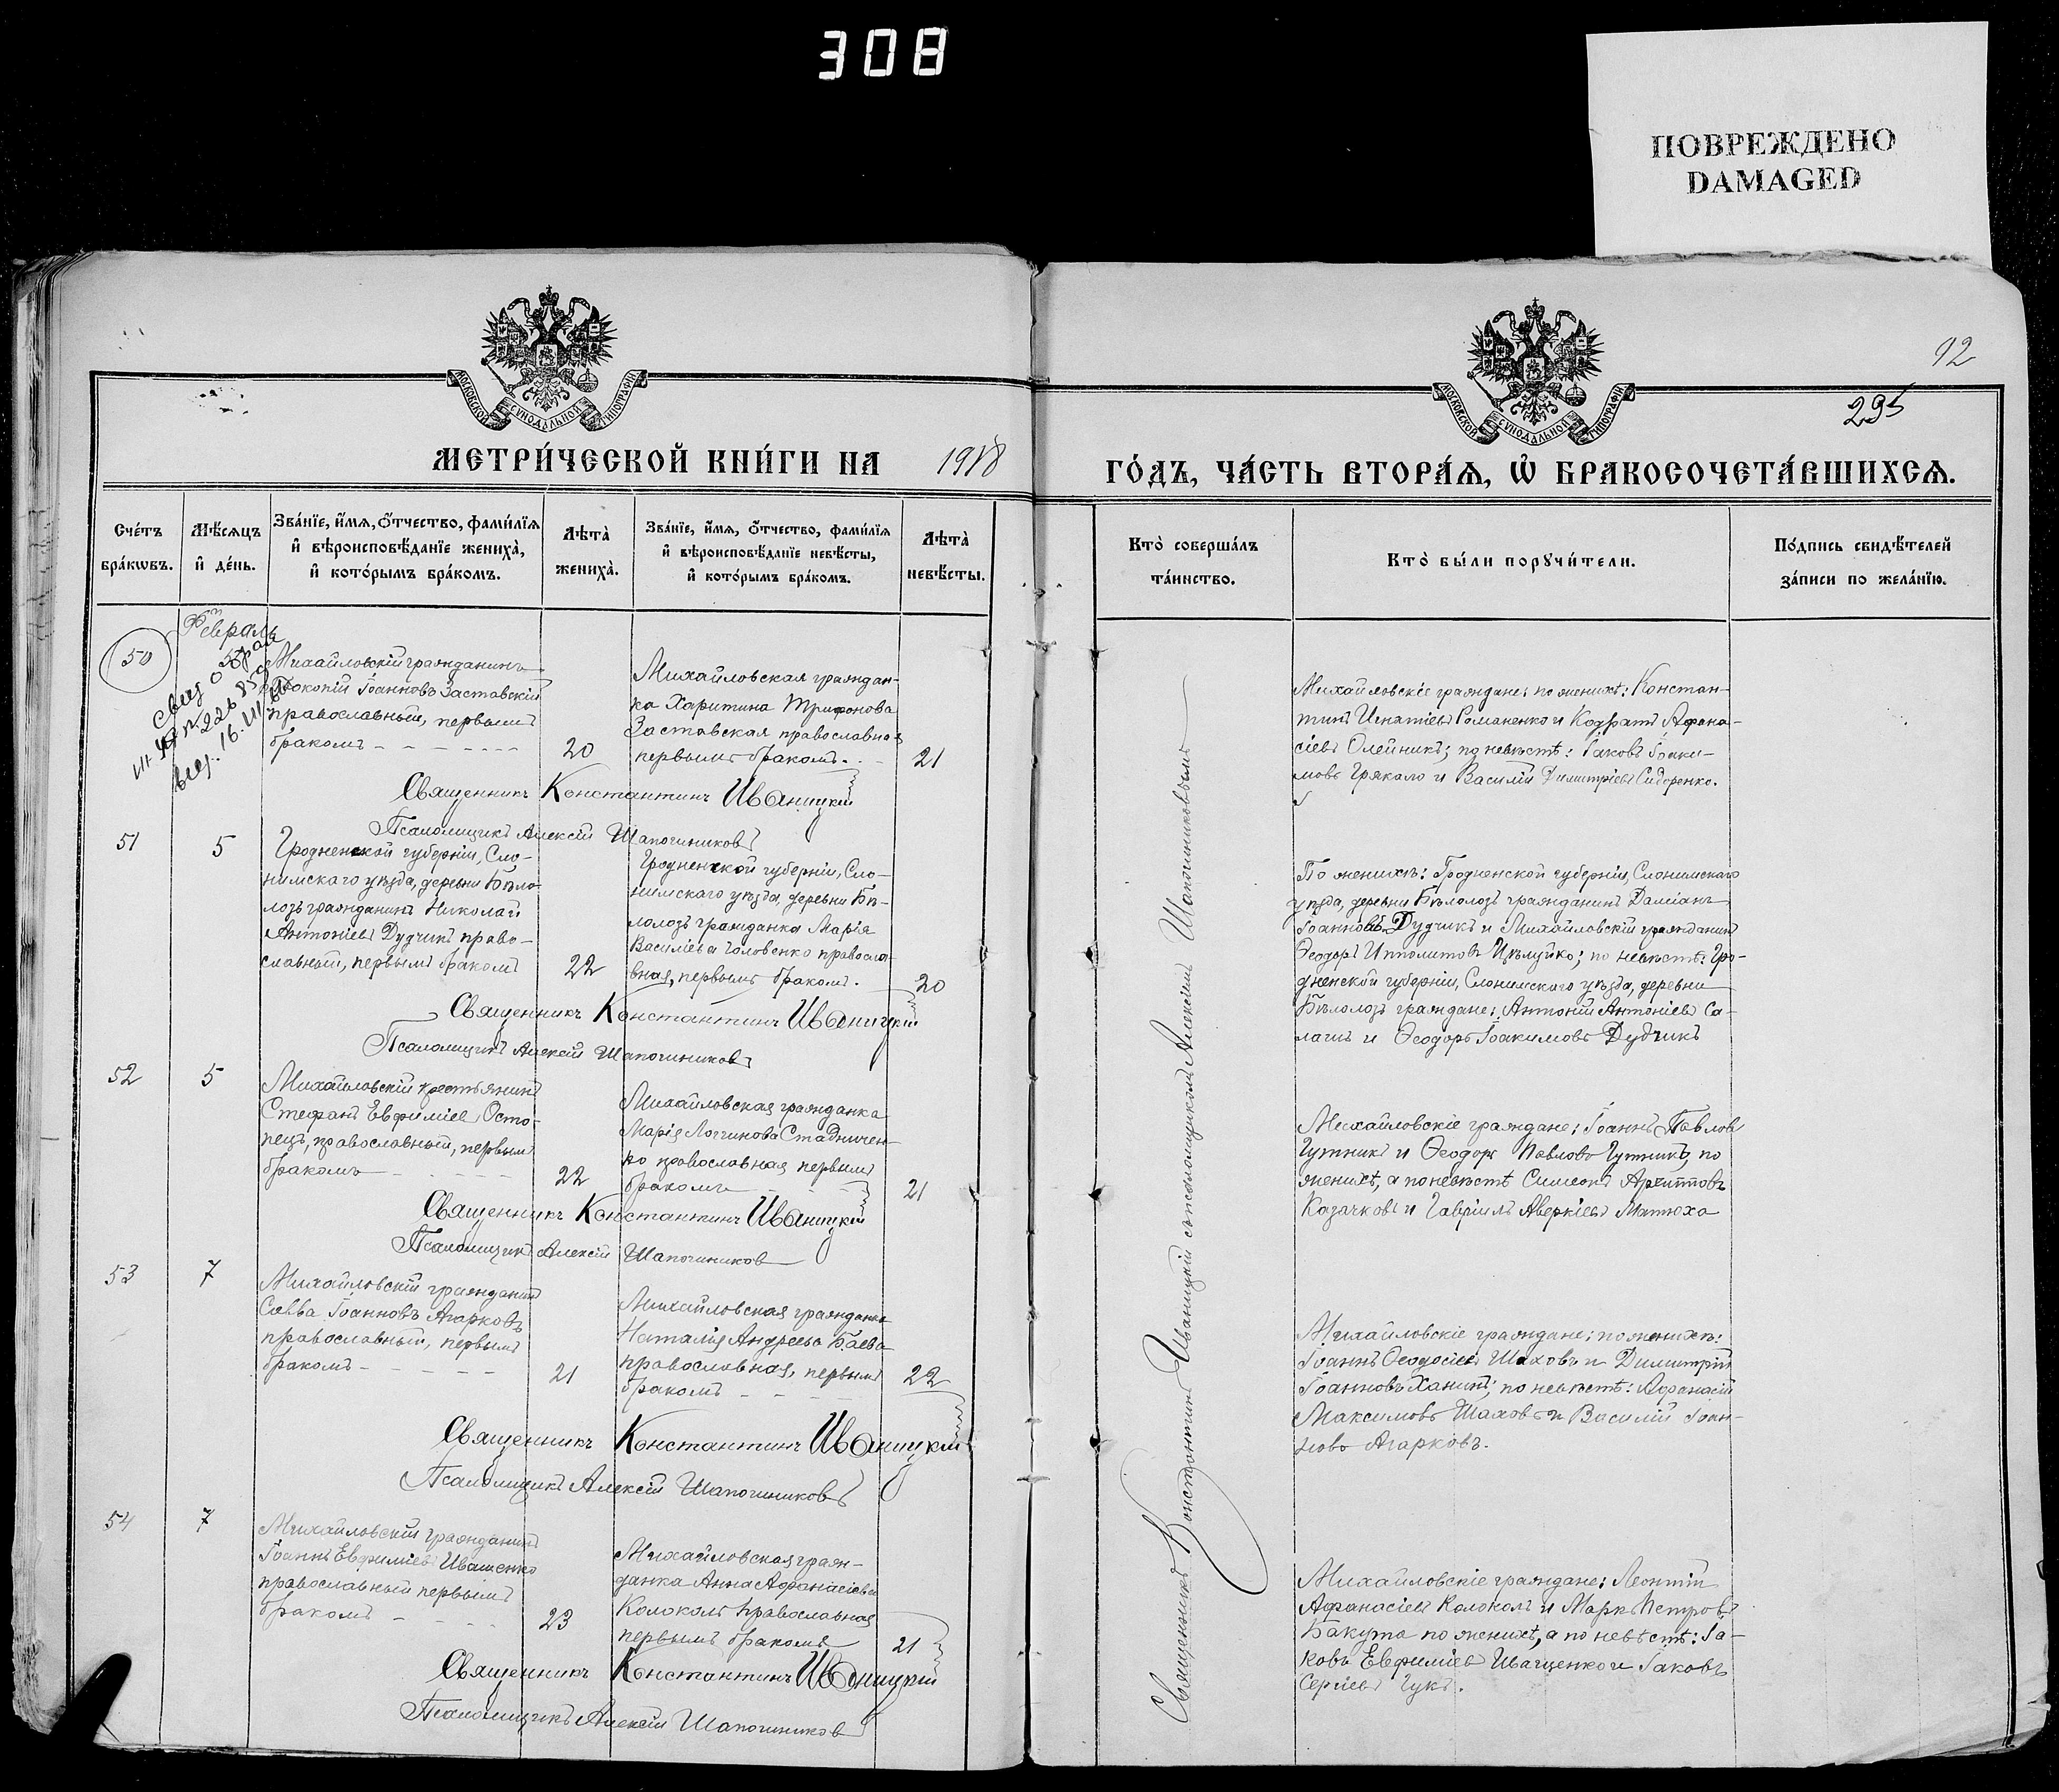 308
ПОВРЕЖДЕНО
DAMAGED
92
295
МОСКОВСКОЙ СѴНОДАЛЬНОЙ ТИПОГРАФІИ
МОСКОВСКОЙ СѴНОДАЛЬНОЙ ТИПОГРАФІИ
МЕТРИ́ЧЕСКОЙ КНИ́ГИ НА 1918
ГО́ДЪ, ЧА́СТЬ ВТОРА́Я, Ѡ БРАКОСОЧЕТА́ВШИХСЯ.
Сче́тъ бра́кѡвъ.
Мѣ́сяцъ и҆ де́нь.
Зва́нїе, и҆́мя, ѻ҆́тчество, фами́лїя и҆ вѣроисповѣ́данїе жениха̀, и҆ кото́рымъ бра́комъ.
Лѣта̀ жениха̀.
Зва́нїе, и҆́мя, ѻ҆́тчество, фами́лїя и҆ вѣроисповѣ́данїе невѣ́сты, и҆ кото́рымъ бра́комъ.
Лѣта̀ невѣ́сты.
Кто̀ соверша́лъ та́инство.
Кто̀ бы́ли порꙋчи́тели.
По́дпись свидѣ́телей за́писи по жела́нїю.
Февраль
50
5
Михайловскій гражданинъ
Прокопій Іоанновъ Заставскій
православный, первымъ
бракомъ - - - - - -
20
Михайловская граждан-
ка Харитина Трифонова
Заставская православная
первымъ бракомъ. -
21
Михайловскіе граждане; по женихѣ: Констан-
тинъ Игнатіевъ Романенко и Кодратъ Афана-
сіевъ Олейникъ; по невѣстѣ: Іаковъ Іоаки-
мовъ Грякало и Василій Димитріевъ Сидоренко.
Священникъ Константинъ Иваницкій
Псаломщикъ Алексій Шапочниковъ
51
5
Гродненской губерніи, Сло-
нимскаго уѣзда, деревни Бѣло-
лозъ гражданинъ Николай
Антоніевъ Дудчикъ право-
славный, первымъ бракомъ
22
Гродненской губерніи, Сло-
нимскаго уѣзда, деревни Бѣ-
лолозъ гражданка Марія
Василіева Головенко правосла-
вная, первымъ бракомъ.
20
По женихѣ: Гродненской губерніи, Слонимскаго
уѣзда, деревни Бѣлолозъ гражданинъ Даміанъ
Іоанновъ Дудчикъ и Михайловскій гражданинъ
Ѳеодоръ Ипполитовъ Цѣлуйко; по невѣстѣ: Гро-
дненской губерніи, Слонимскаго уѣзда, деревни
Бѣлолозъ граждане: Антоній Антоніевъ Са-
лашъ и Ѳеодоръ Іоакимовъ Дудчикъ
Священникъ Константинъ Иваницкій
Псаломщикъ Алексій Шапочниковъ
52
5
Михайловскій крестьянинъ
Стефанъ Евфиміев Осто-
пецъ, православный, первымъ
бракомъ - - - - -
22
Михайловская гражданка
Марія Логгинова Стадничен-
ко православная первымъ
бракомъ - - -
21
Михайловскіе граждане: Іоаннъ Павловъ
Гутникъ и Ѳеодоръ Павловъ Гутникъ, по
женихѣ, а по невѣстѣ Симеонъ Архипповъ
Казачковъ и Гавріилъ Аверкіевъ Матюха
Священникъ Константинъ Иваницкій
Псаломщикъ Алексій Шапочников
53
7
Михайловскій гражданинъ
Савва Іоанновъ Агарковъ
православный, первымъ
бракомъ - - - -
21
Михайловская гражданка
Наталія Андреева Баева
православная, первымъ
бракомъ - - -
22
Михайловскіе граждане: по женихѣ:
Іоаннъ Ѳеодосіевъ Шаховъ и Димитрій
Іоанновъ Ханинъ; по невѣстѣ: Афанасій
Максимовъ Шаховъ и Василій Іоан-
новъ Агарковъ.
Священникъ Константинъ Иваницкій
Псаломщикъ Алексій Шапочниковъ
54
7
Михайловскій гражданинъ
Іоаннъ Евфиміевъ Иващенко
православный первымъ
бракомъ - - -
23
Михайловская граж-
данка Анна Афанасіева
Колоколъ православная
первымъ бракомъ
21
Михайловскіе граждане: Леонтій
Афанасіевъ Колоколъ и Маркъ Петровъ
Бакута по женихѣ, а по невѣстѣ: Іа-
ковъ Евфиміев Иващенко и Іаковъ
Сергіевъ Гукъ.
Священникъ Константинъ Иваницкій
Псаломщикъ Алексій Шапочников
Священникъ Константинъ Иваницкій съ псаломщикомъ Алексіемъ Шапочниковымъ